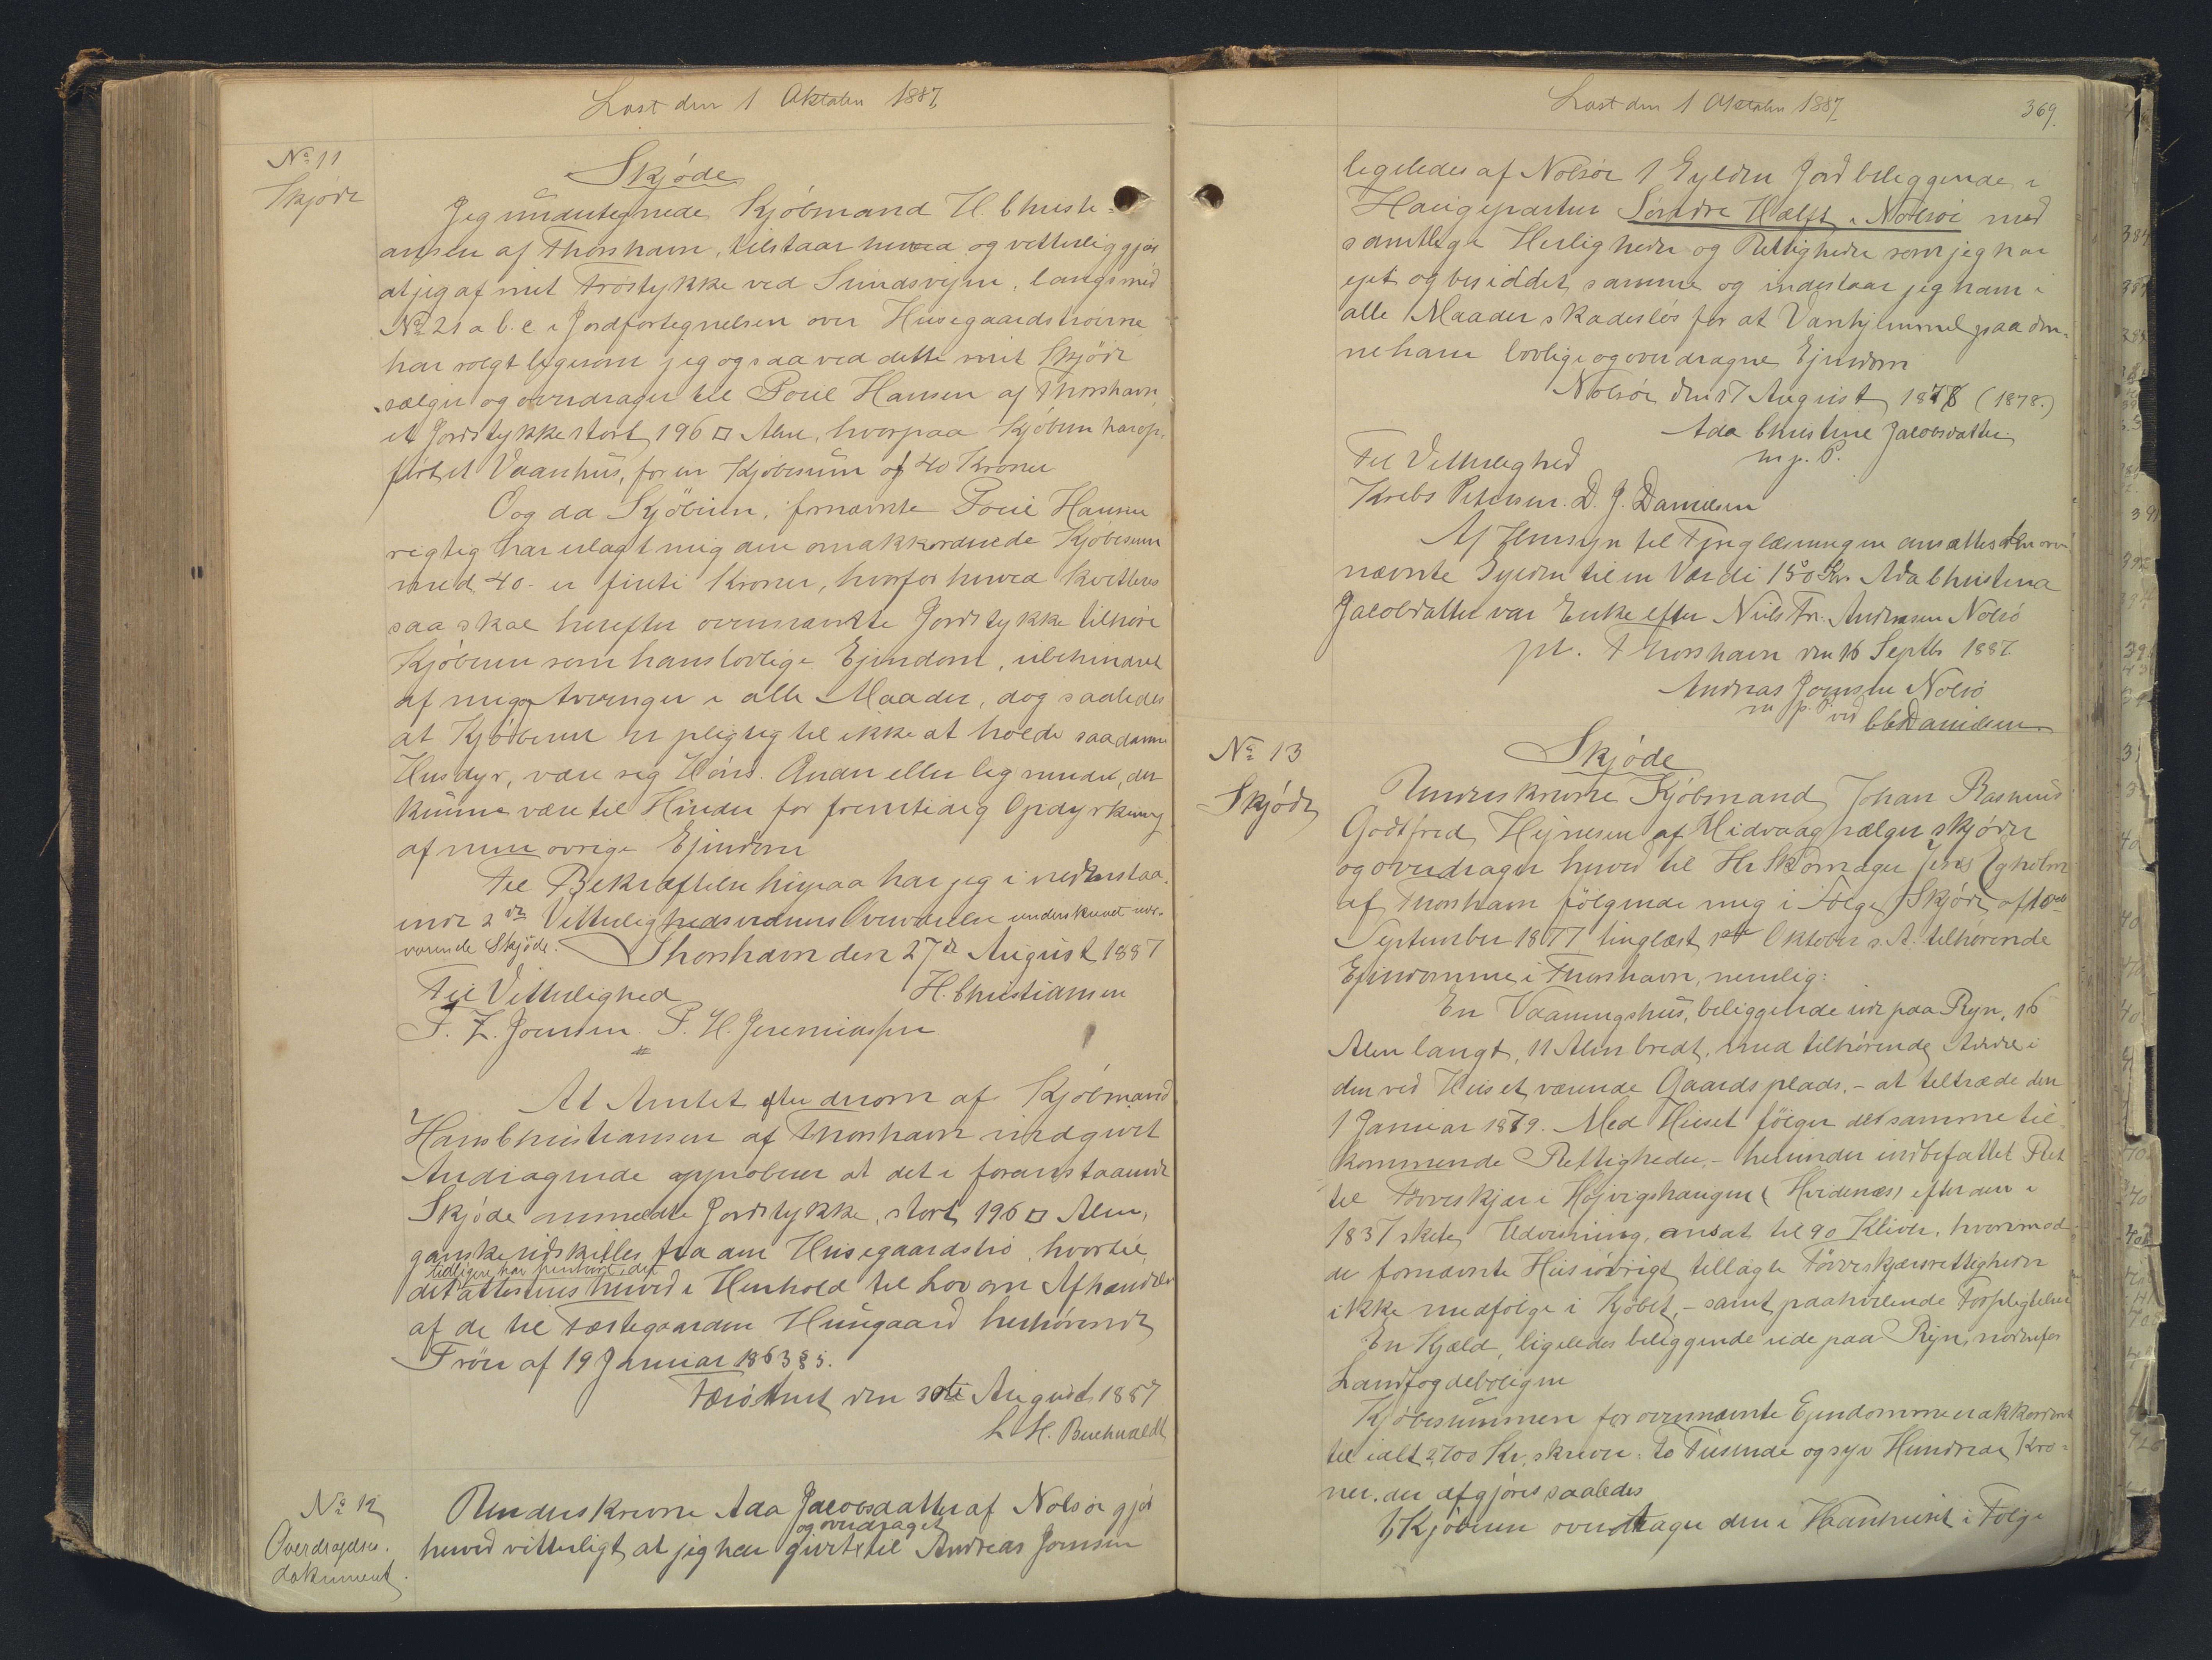 Læst den 1 Oktober 1887,
No 11
Skjøde
Skjøde
Jeg undertegnede Kjøbmand H. Christi=
ansen af Thorshavn, tilstaar herved og vitterliggjør
at jeg af mit Trøstykke ved Sundsvejen, langsmed
No 21 a b. c i Jordfortegnelsen over Husegaardstrøerne
har solgt ligesom jeg ogsaa ved dette mit Skjøde
sælger og overdrager til Poul Hansen af Thorshavn,
et Jordstykke stort 196 □ Alen, hvorpaa Kjøberen har op-
ført et Vaanhus, for en Kjøbesum af 40 Kroner
Og da Kjøberen, fornævnte Poul Hansen
rigtig har erlagt mig den omakkorderede Kjøbesum
med 40 - er firti Kroner, hvorfor herved kvitteres
saa skal herefter ovennævnte Jordstykke tilhøre
Kjøberen som hans lovlige Ejendom, ubehindret
af mig og Arvinger i alle Maader, dog saaledes
at Kjøberen er pligtig til ikke at holde saadanne
Husdyr, være sig Høns. Ænder eller lignende, der
kunne være til Hinder for fremtidig Opdyrkning
af min øvrige Ejendom
Til Bekræftelse herpaa har jeg i nedenstaa-
ende 2de Vitterlighedsvidners Overværelse underskrevet nær-
værende Skjøde. Thorshavn den 27de August 1887
Til Vitterlighed H. Christiansen
F. Z. Joensen. P. H. Jeremiassen
At Amtet efter derom af Kjøbmand
Hans Christiansen af Thorshavn indgivet
Andragende approberer at det i foranstaaende
Skjøde ommeldte Jordstykke, stort 196 □ Alen,
ganske udskilles fra den Husegaardstrø, hvortil
tidligere har henhørt, det
det attesteres herved i Henhold til Lov om Afhændelse
af de til Fæstegaarden Husegaard henhørende
Trøer af 19 Januar 1863 § 5.
Færø Amt den 30te August 1887
L H. Buchwaldt
No 12
Overdragelses-
dokument.
Underskrevne Ada Jacobsdatter af Nolsøe gjør
og overdraget
herved vitterligt, at jeg har givet til Andreas Joensen
Læst den 1 Oktober 1887.
369.
ligeledes af Nolsøe 1 Gylden Jord beliggende i
Haugeparten Søndre Hælft i Nolsøe med
samtlige Herligheder og Rettigheder som jeg har
ejet og besiddet samme og indestaar jeg ham i
alle Maader skadesløs for at Vanhjemmel paa den-
ne ham lovlige og overdragne Ejendom
Nolsøe den 17 August 1878 (1878.)
Ada Christine Jacobsdatter
m. p. P.
Til Vitterlighed
Krebs Petersen. D. J. Danielsen
Af Hensyn til Tinglæsningen ansættes den oven-
nævnte Gylden til en Værdi 150 Kr. Ada Christina
Jacobsdatter var Enke efter Niels Fr. Andreasen Nolsø
pt. Thorshavn den 16 Septbr 1887
Andreas Joensen Nolsø
m. p. P. ved
C C Danielsen.
No 13
Skjøde
Skjøde
Underskrevne Kjøbmand Johan Rasmus
Godtfred Hejnesen af Midvaag sælger skjøder
og overdrager herved til Hr Skomager Jens Egholm
af Thorshavn følgende mig i Følge Skjøde af 10de
September 1877 tinglæst 1ste Oktober s. A. tilhørende
Ejendomme i Thorshavn, nemlig:
En Vaaningshus, beliggende ude paa Ryn, 16
Alen langt, 11 Alen bredt, med tilhørende Andel i
den ved Huset værende Gaardsplads. - at tiltræde den
1 Januar 1879. Med Huset følger det samme til-
kommende Rettigheder, - herunder indbefattet Ret
til Tørveskjær i Højvigshaugen (Hvidenæs) efter den i
1837 skete Udvisning, ansat til 90 Kliver, hvorimod
de fornævnte Hus iøvrigt tillagte Tørveskjærsrettigheder
ikke medfølge i Kjøbet, - samt paahvilende Forpligtelser
En Kjæld, ligeledes beliggende ude paa Ryn, nordenfor
Landfogdeboligen
Kjøbesummen for ovennævnte Ejendomme er akkorderet
til ialt 2,700 Kr, skriver: to Tusinde og syv Hundrede Kro=
ner. der afgjøres saaledes
1, Kjøberen overtager den i Vaanhuset i Følge